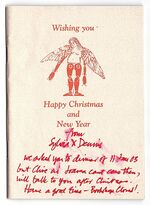 Wishing you
Happy Christmas
and
New Year
from
Sylvia & Dennis
we asked you to dinner of 11 Jan 03
but Clive at Seama cant come then,
will talk to you after Christmas.
Have a good time - Bookshop Closed!